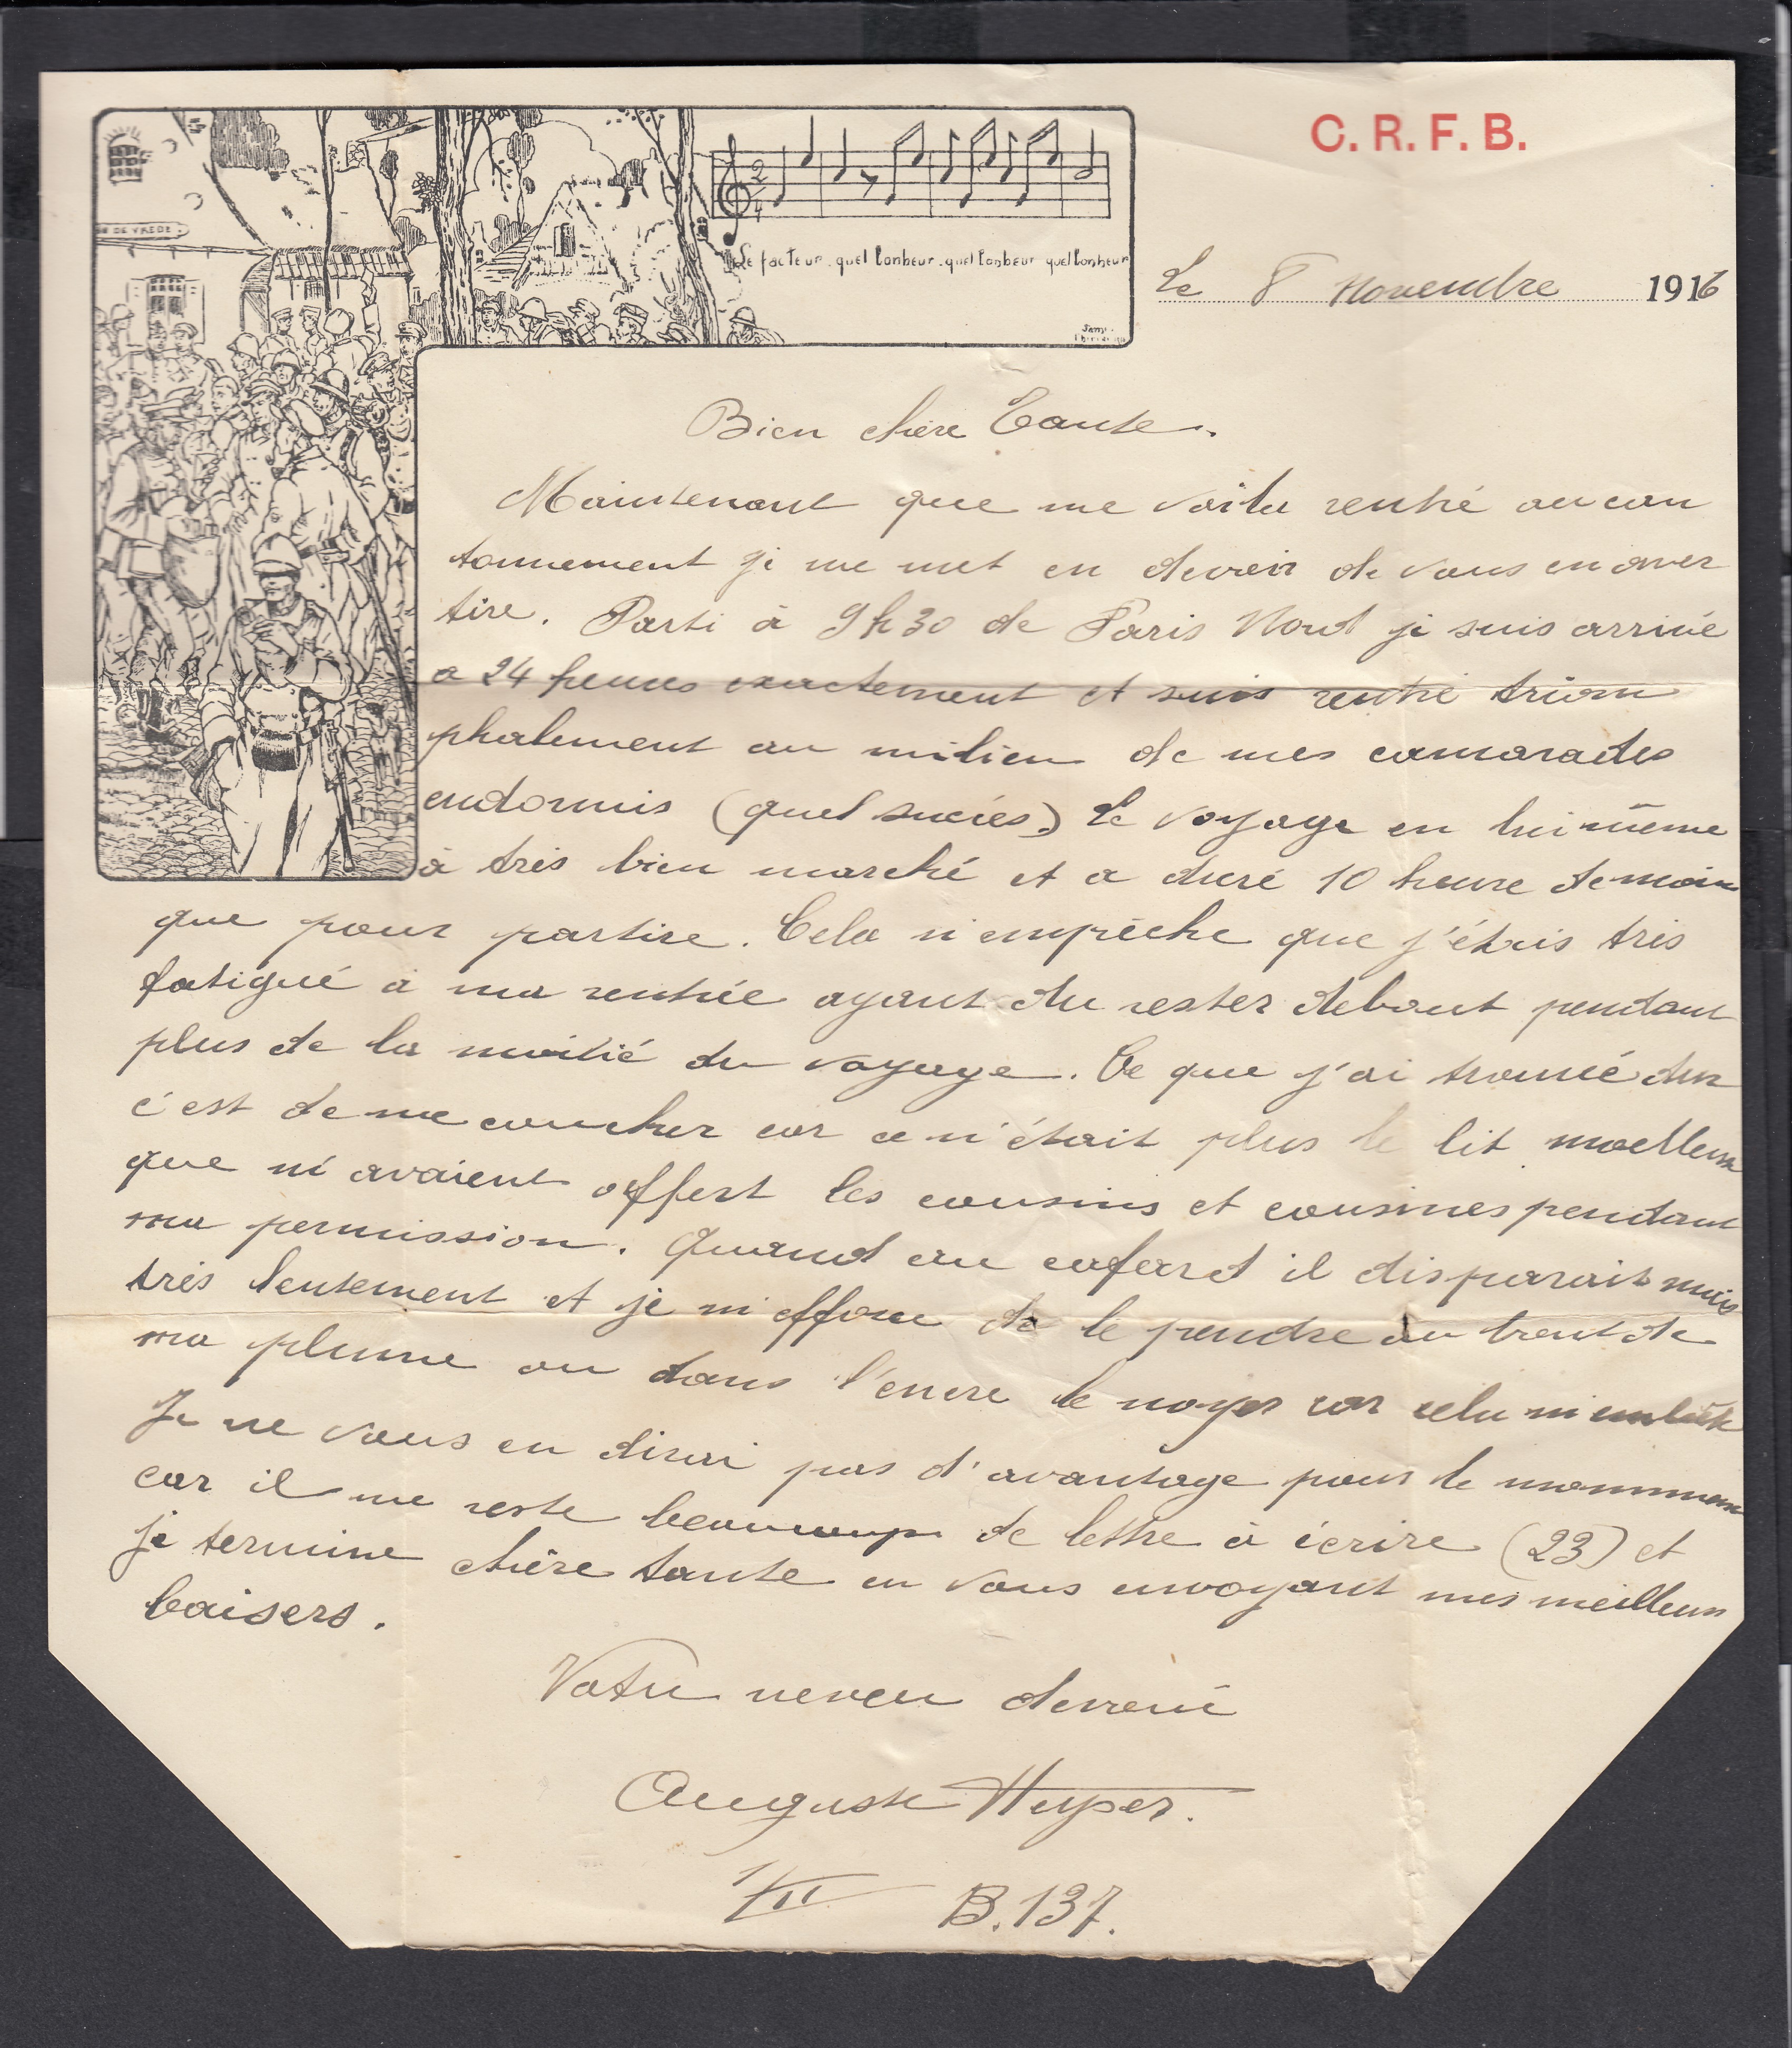 C. R. F. B.
DE VREDE
2
4
Le facteur. quel bonheur. quel bonheur quel bonheur
Le 8 Novembre 1916
Bien chère Tante.
Maintenant que me voila rentré au can
tonnement je me met en devoir de vous en aver
tire. Parti à 9h30 de Paris Nord je suis arrivé
a 24 heures exactement et suis rentré triom
phalement au milieu de mes camarades
endormis (quel succès.) Le voyage en lui même
à très bien marché et a duré 10 heure de moin
que pour partire. Cela n'empèche que j'étais très
fatigué a ma rentrée ayant du rester debout pendant
plus de la moitié du voyage. Ce que j'ai trouvé dur
c'est de me coucher car ce n'était plus le lit moelleux
que m'avaient offert les cousins et cousines pendant
ma permission. Quand au cafard il disparait mais
très lentement et je m'efforce de le pendre au bout de
ma plume ou dans l'encre le noyer car cela m'embête
Je ne vous en dirai pas d'avantage pour le momment
car il me reste beaucoup de lettre à écrire (23) et
je termine chère tante en vous envoyant mes meilleurs
baisers.
Votre neveu dévoué
Auguste Huper.
1/II B.137.